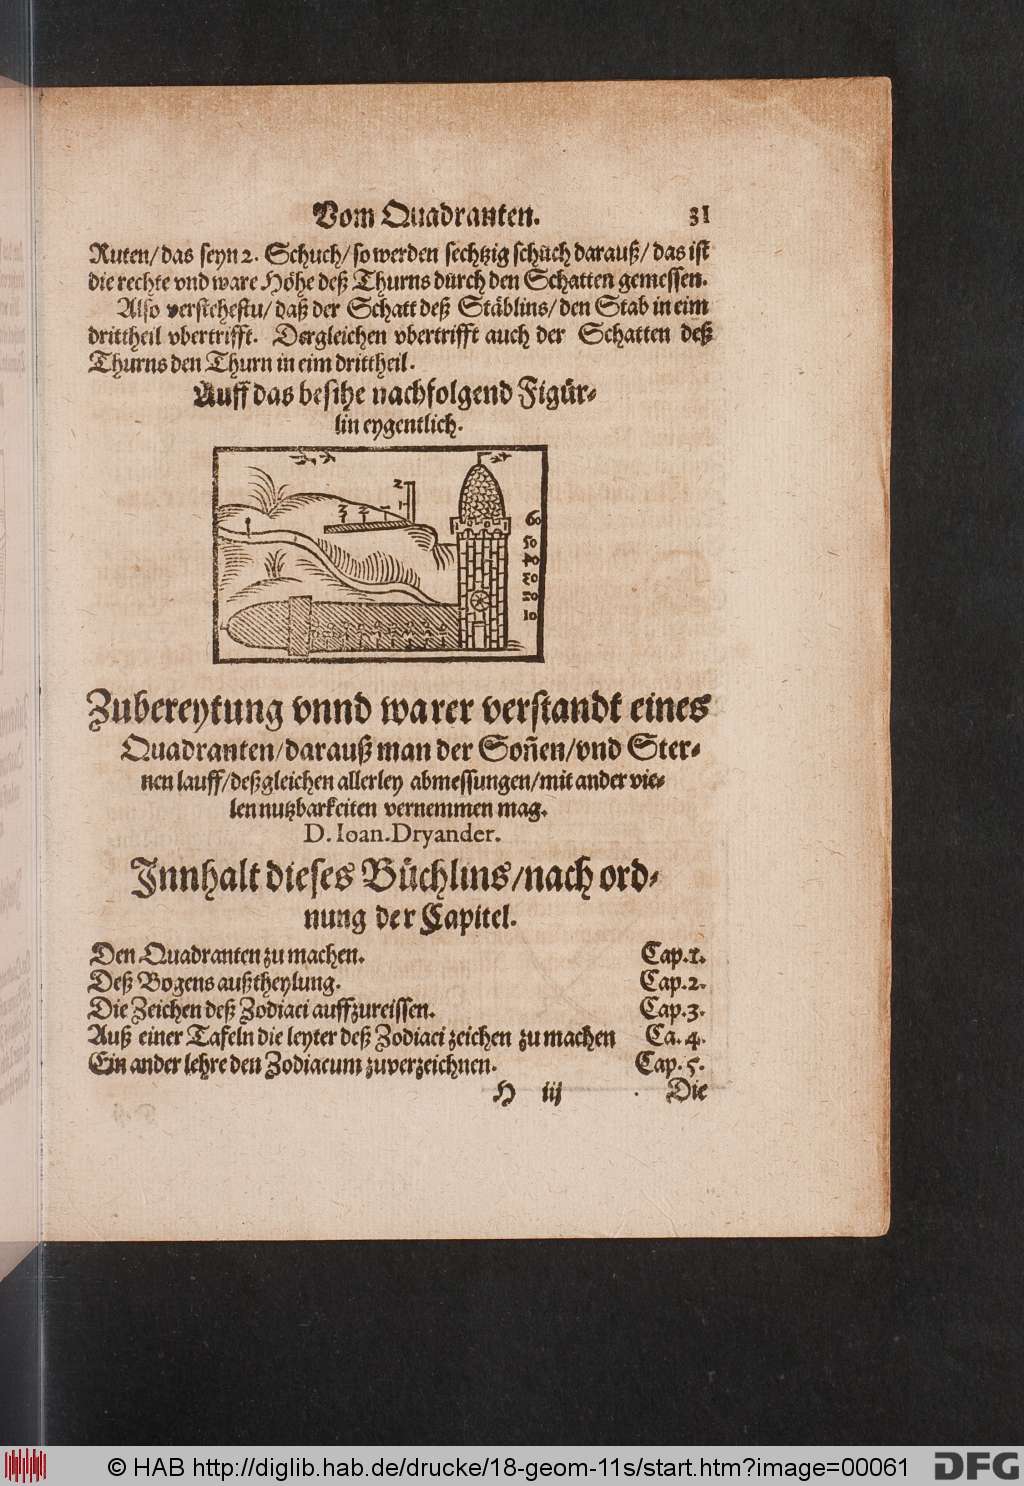 Vom Quadranten. 31
Ruten/ das seyn 2. Schuch/ so werden sechtzig schůch darauß/ das ist
die rechte vnd ware Höhe deß Thurns durch den Schatten gemessen.
Also verstehestu/ daß der Schatt deß Stäblins/ den Stab in eim
drittheil vbertrifft. Dergleichen vbertrifft auch der Schatten deß
Thurns den Thurn in eim drittheil.
Auff das besihe nachfolgend Figür-
lin eygentlich.
2
1
3 2 1
60
50
40
30
20
10
Zubereytung vnnd warer verstandt eines
Quadranten/ darauß man der Soñen/ vnd Ster-
nen lauff/ deßgleichen allerley abmessungen/ mit ander vie-
len nutzbarkeiten vernemmen mag.
D. Ioan. Dryander.
Innhalt dieses Büchlins/ nach ord-
nung der Capitel.
Den Quadranten zu machen. Cap.1.
Deß Bogens außtheylung. Cap.2.
Die Zeichen deß Zodiaci auffzureissen. Cap.3.
Auß einer Tafeln die leyter deß Zodiaci zeichen zu machen Ca.4.
Ein ander lehre den Zodiacum zuverzeichnen. Cap.5.
H iij Die
© HAB http://diglib.hab.de/drucke/18-geom-11s/start.htm?image=00061 DFG